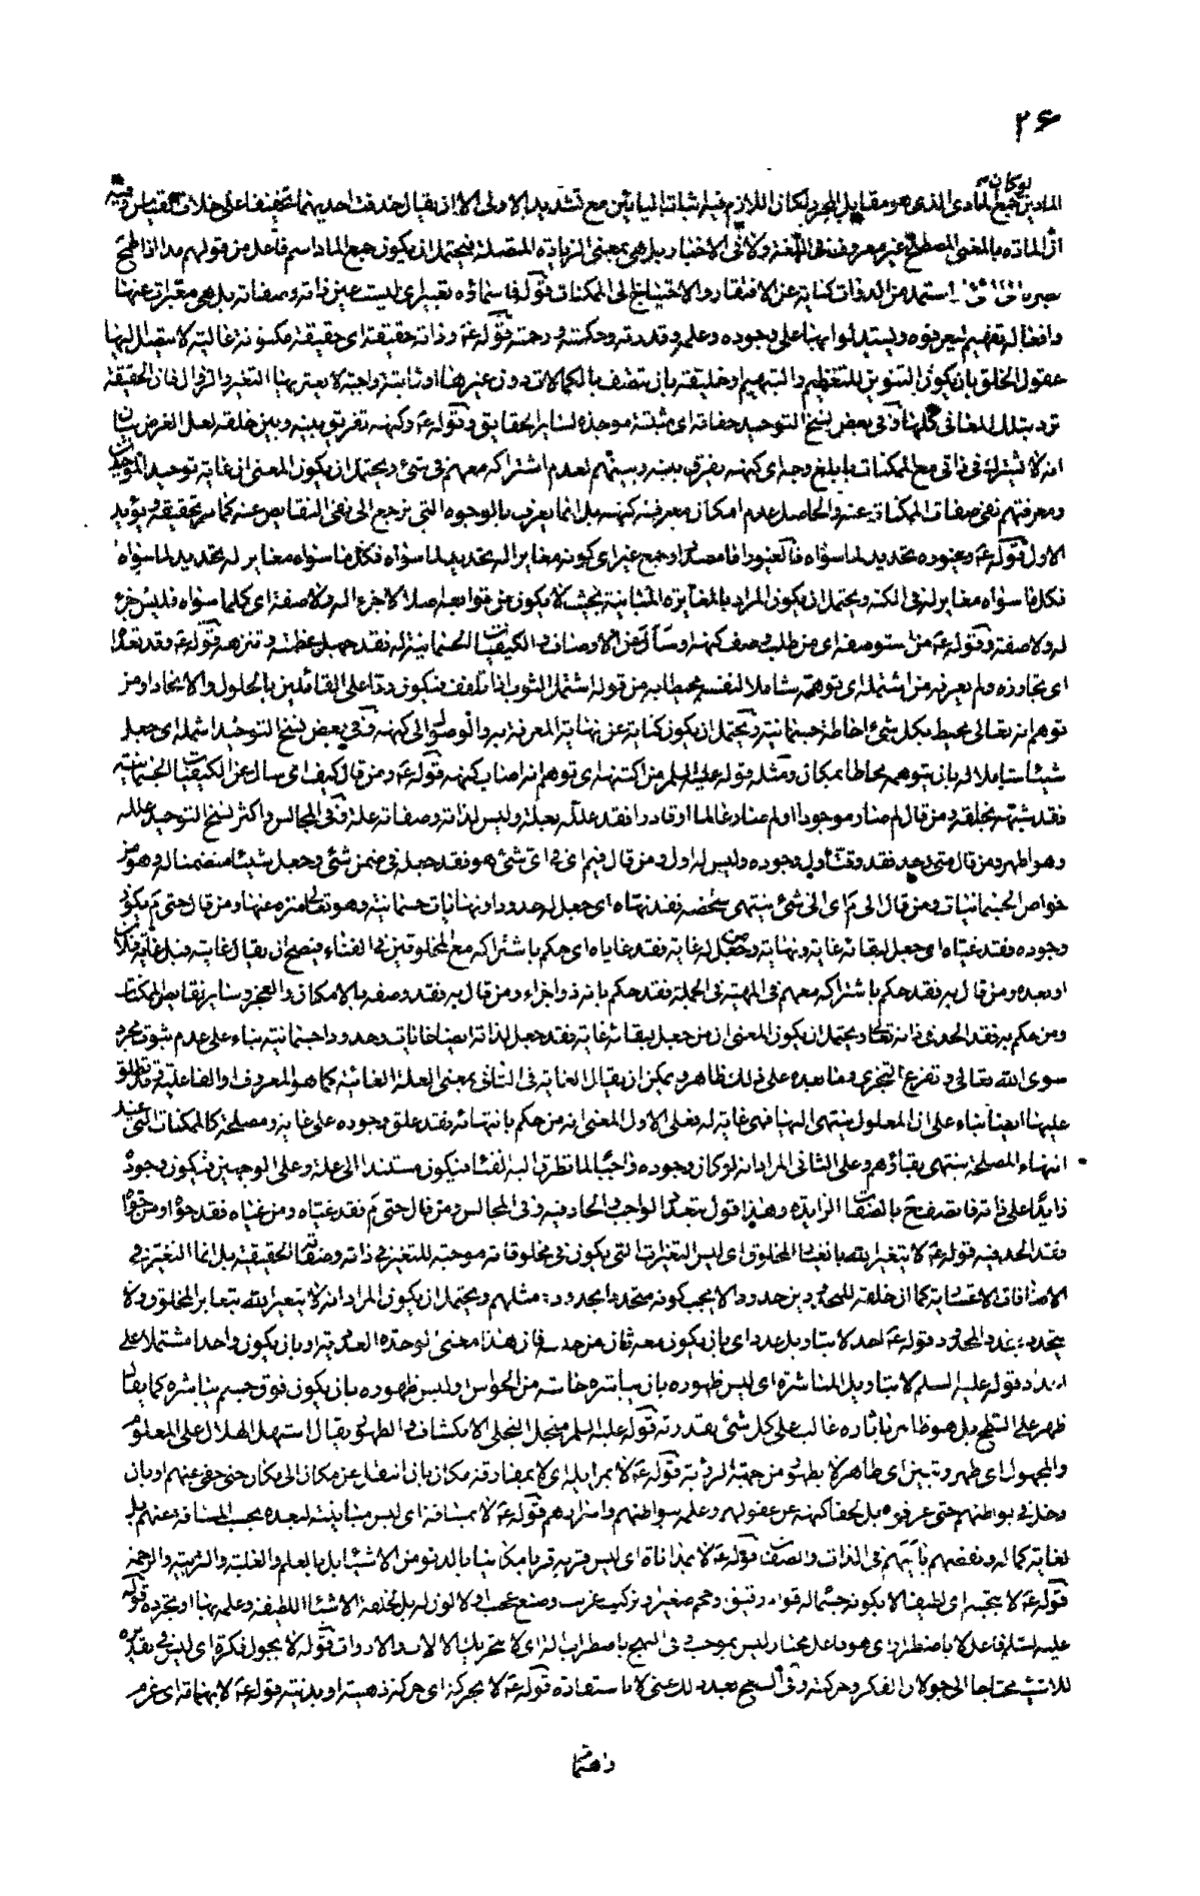 ۲۶
لو كان
المادين جمع المادى الذى هو مقابل المجرد لكان اللازم فيه اثبات اليائين مع تشديد الاولى الا ان يقال حذفت احديهما تخفيفا على خلاف القياس وفيه
ان المادة بالمعنى المصطلح غير معروفة فى اللغة ولا فى الاخبار بل هى بمعنى الزيادة المتصلة فيحتمل ان يكون جمع الماد اسم فاعل من قولهم مد اذا طمح
استمد من الدوات كناية عن الافتقار والاحتياج الى الممكنات قوله فاسماؤه تعبير اى ليست عين ذاته وصفاته بل هى معبرات عنها
وافعاله تفهيم ليعرفوه ويستدلوا بها على وجوده وعلمه وقدرته وحكمته ورحمته قوله ع وذاته حقيقة اى حقيقة مكنونة عالية لا يصل اليها
عقول الخلق بان يكون التنوين للتعظيم والتبهيم او خليقة بان تتصف بالكمالات دون غيرها او ثابتة واجبة لا يعتريها التغير والزوال فان الحقيقة
ترد بتلك المعانى كلها وفى بعض نسخ التوحيد حقاقة اى مثبتة موجدة لساير الحقايق وقوله ع وكنهه تفريق بينه وبين خلقه لعل الغرض بيان
انه لا يشترك فى ذاتى مع الممكنات بابلغ وجه اى كنهه يفرق بينه وبينهم لعدم اشتراكه معهم فى شئ ويحتمل ان يكون المعنى ان غاية توحيد الموحدين
ومعرفتهم نفى صفات الممكنات عنه والحاصل عدم امكان معرفة كنهه بل انما يعرف بالوجوه التى ترجع الى نفى النقايص عنه كما مر تحقيقه ويؤيد
الاول قوله ع وغيوره تحديد لما سواه فالغيور اما مصدر او جمع غير اى كونه مغايرا له تحديد لما سواه فكل ما سواه مغاير له تحديد لما سواه
فكل ما سواه مغاير له فى الكنه ويحتمل ان يكون المراد بالمغايرة المباينة بحيث لا يكون من توابعه اصلا لا جزء اله ولا صفة اى كلما سواه فليس جزء
له ولا صفة وقوله ع من استوصفه اى من طلب وصف كنهه او سأل عن الاوصاف والكيفيات الجسمانية له فقد جهل عظمته وتنزهه قوله ع وقد تعداه
اى تجاوزه ولم يعرفه من اشتمله اى توهمه شاملا لنفسه محيطا به من قولهم اشتمل الثوب اذا تلفف فيكون ردا على القائلين بالحلول والاتحاد او من
توهم انه تعالى محيط بكل شئ احاطة جسمانية ويحتمل ان يكون كناية عن نهاية المعرفة به والوصول الى كنهه وفى بعض نسخ التوحيد اشمله اى جعل
شيئا شاملا له بان توهمه محاطا بمكان ومثله قوله عليه السلم من اكتنهه اى توهم انه اصاب كنهه قوله ع ومن قال كيف اى سال عن الكيفيات الجسمانية
فقد شبهه بخلقه ومن قال لم صار موجودا او لم صار عالما او قادرا فقد علله بعلة وليس لذاته وصفاته علة وفى المجالس واكثر نسخ التوحيد علله
وهو اظهر ومن قال متى وجد فقد وقت اول وجوده وليس له اول ومن قال فيم اى فى اى شئ هو فقد جعله فى ضمن شئ وجعل شيئا متضمنا له وهو من
خواص الجسمانيات ومن قال الى م اى الى شئ ينتهى شخصه فقد نهاه اى جعل له حدودا ونهايات جسمانية وهو تعالى منزه عنها ومن قال حتى م يكون
وجوده فقد غياه اى جعل لبقائه غاية ونهاية ومن جعل له غاية فقد غاياه اى حكم باشتراكه مع المخلوقين فى الفناء فيصح ان يقال غايته قبل غاية فلان
او بعده ومن قال به فقد حكم باشتراكه معهم فى المهية فى الجملة فقد حكم بانه ذو اجزاء ومن قال به فقد وصفه بالامكان والعجز وساير نقايص الممكنات
ومن حكم به فقد الحد فى ذاته تعالى ويحتمل ان يكون المعنى ان من جعل لبقائه غاية فقد جعل لذاته ايضا غايات وحدودا جسمانية بناء على عدم ثبوت مجرد
سوى الله تعالى وتفرع التجزى وما بعده على ذلك ظاهر ويمكن ان يقال الغاية فى الثانى بمعنى العلة الغائية كما هو المعروف او الفاعلية وقد تطلق
عليها ايضا بناء على ان المعلول ينتهى اليها فهى غاية له فعلى الاول المعنى انه من حكم بانتهائه فقد علق وجوده على غاية ومصلحة كالممكنات التى عند
انتهاء المصلحة ينتهى بقاؤهم وعلى الثانى المراد انه لو كان وجوده واجبا لما تطرق اليه الفناء فيكون مستندا الى علة وعلى الوجهين فيكون وجوده
زايدا على ذاته فاتصف ح بالصفات الزايدة وهذا قول بتعدد الواجب والحاد فيه وفى المجالس ومن قال حتى م فقد غياه ومن غياه فقد حواه ومن حواه
فقد الحد فيه قوله ع لا يتغير الله بانغيار المخلوق اى ليس التغيرات التى يكون فى مخلوقاته موجبة للتغير فى ذاته وصفاته الحقيقية بل انما التغير فى
الاضافات الاعتبارية كما ان خلقه للمحدودين حدودا لا يوجب كونه متحددا بحدود مثلهم ويحتمل ان يكون المراد انه لا يتغير الله بتغاير المخلوق ولا
يتحدد بتحدد المحدود قوله ع احد لا بتاويل عدد اى بان يكون معه ثان من جنسه فان هذا معنى الوحدة العددية او بان يكون واحدا مشتملا على
اعداد قوله عليه السلم لا بتاويل المباشرة اى ليس ظهوره بان يباشره حاسة من الحواس او ليس ظهوره بان يكون فوق جسم يباشره كما يقال
ظهر على السطح بل هو ظاهر باثاره غالب على كل شئ بقدرته قوله عليه السلم متجل التجلى الانكشاف والظهور يقال استهل الهلال على المعلوم
والمجهول اى ظهر وتبين اى ظاهر لا بظهور من جهة الرؤية قوله ع لا بمزايلة اى لا بمفارقة مكان بان انتقل عن مكان الى مكان حتى خفى عنهم او بان
دخل فى بواطنهم حتى عرفوه بل لخفاء كنهه عن عقولهم وعلمه ببواطنهم واسرارهم قوله ع لا بمسافة اى ليس مباينته لبعده بحسب المسافة عنهم بل
لغاية كماله ونقصهم باينهم فى الذات والصفات قوله ع لا بمداناة اى ليس قربه قربا مكانيا بالدنو من الاشياء بل بالعلم والغلبة والتربية والرحمة
قوله ع لا بتجسم اى لطيف لا بكونه جسما له قوام رقيق وحجم صغير او تركيب غريب وصنع عجيب او لا لون له بل لخلقه الاشياء اللطيفة وعلمه بها او تجرده قوله
عليه السلم فاعل لا باضطرار اى هو فاعل مختار ليس بموجب وفى النهج باضطراب الة اى لا بتحريك الالات والادوات قوله لا بجول فكرة اى ليس فى تقديره
للاشياء محتاجا الى جولان الفكر وحركته وفى النهج بعده غنى لا باستفادة قوله ع لا بحركة اى حركة ذهنية او بدنية قوله ع لا بهمامة اى عزم
واهتمام